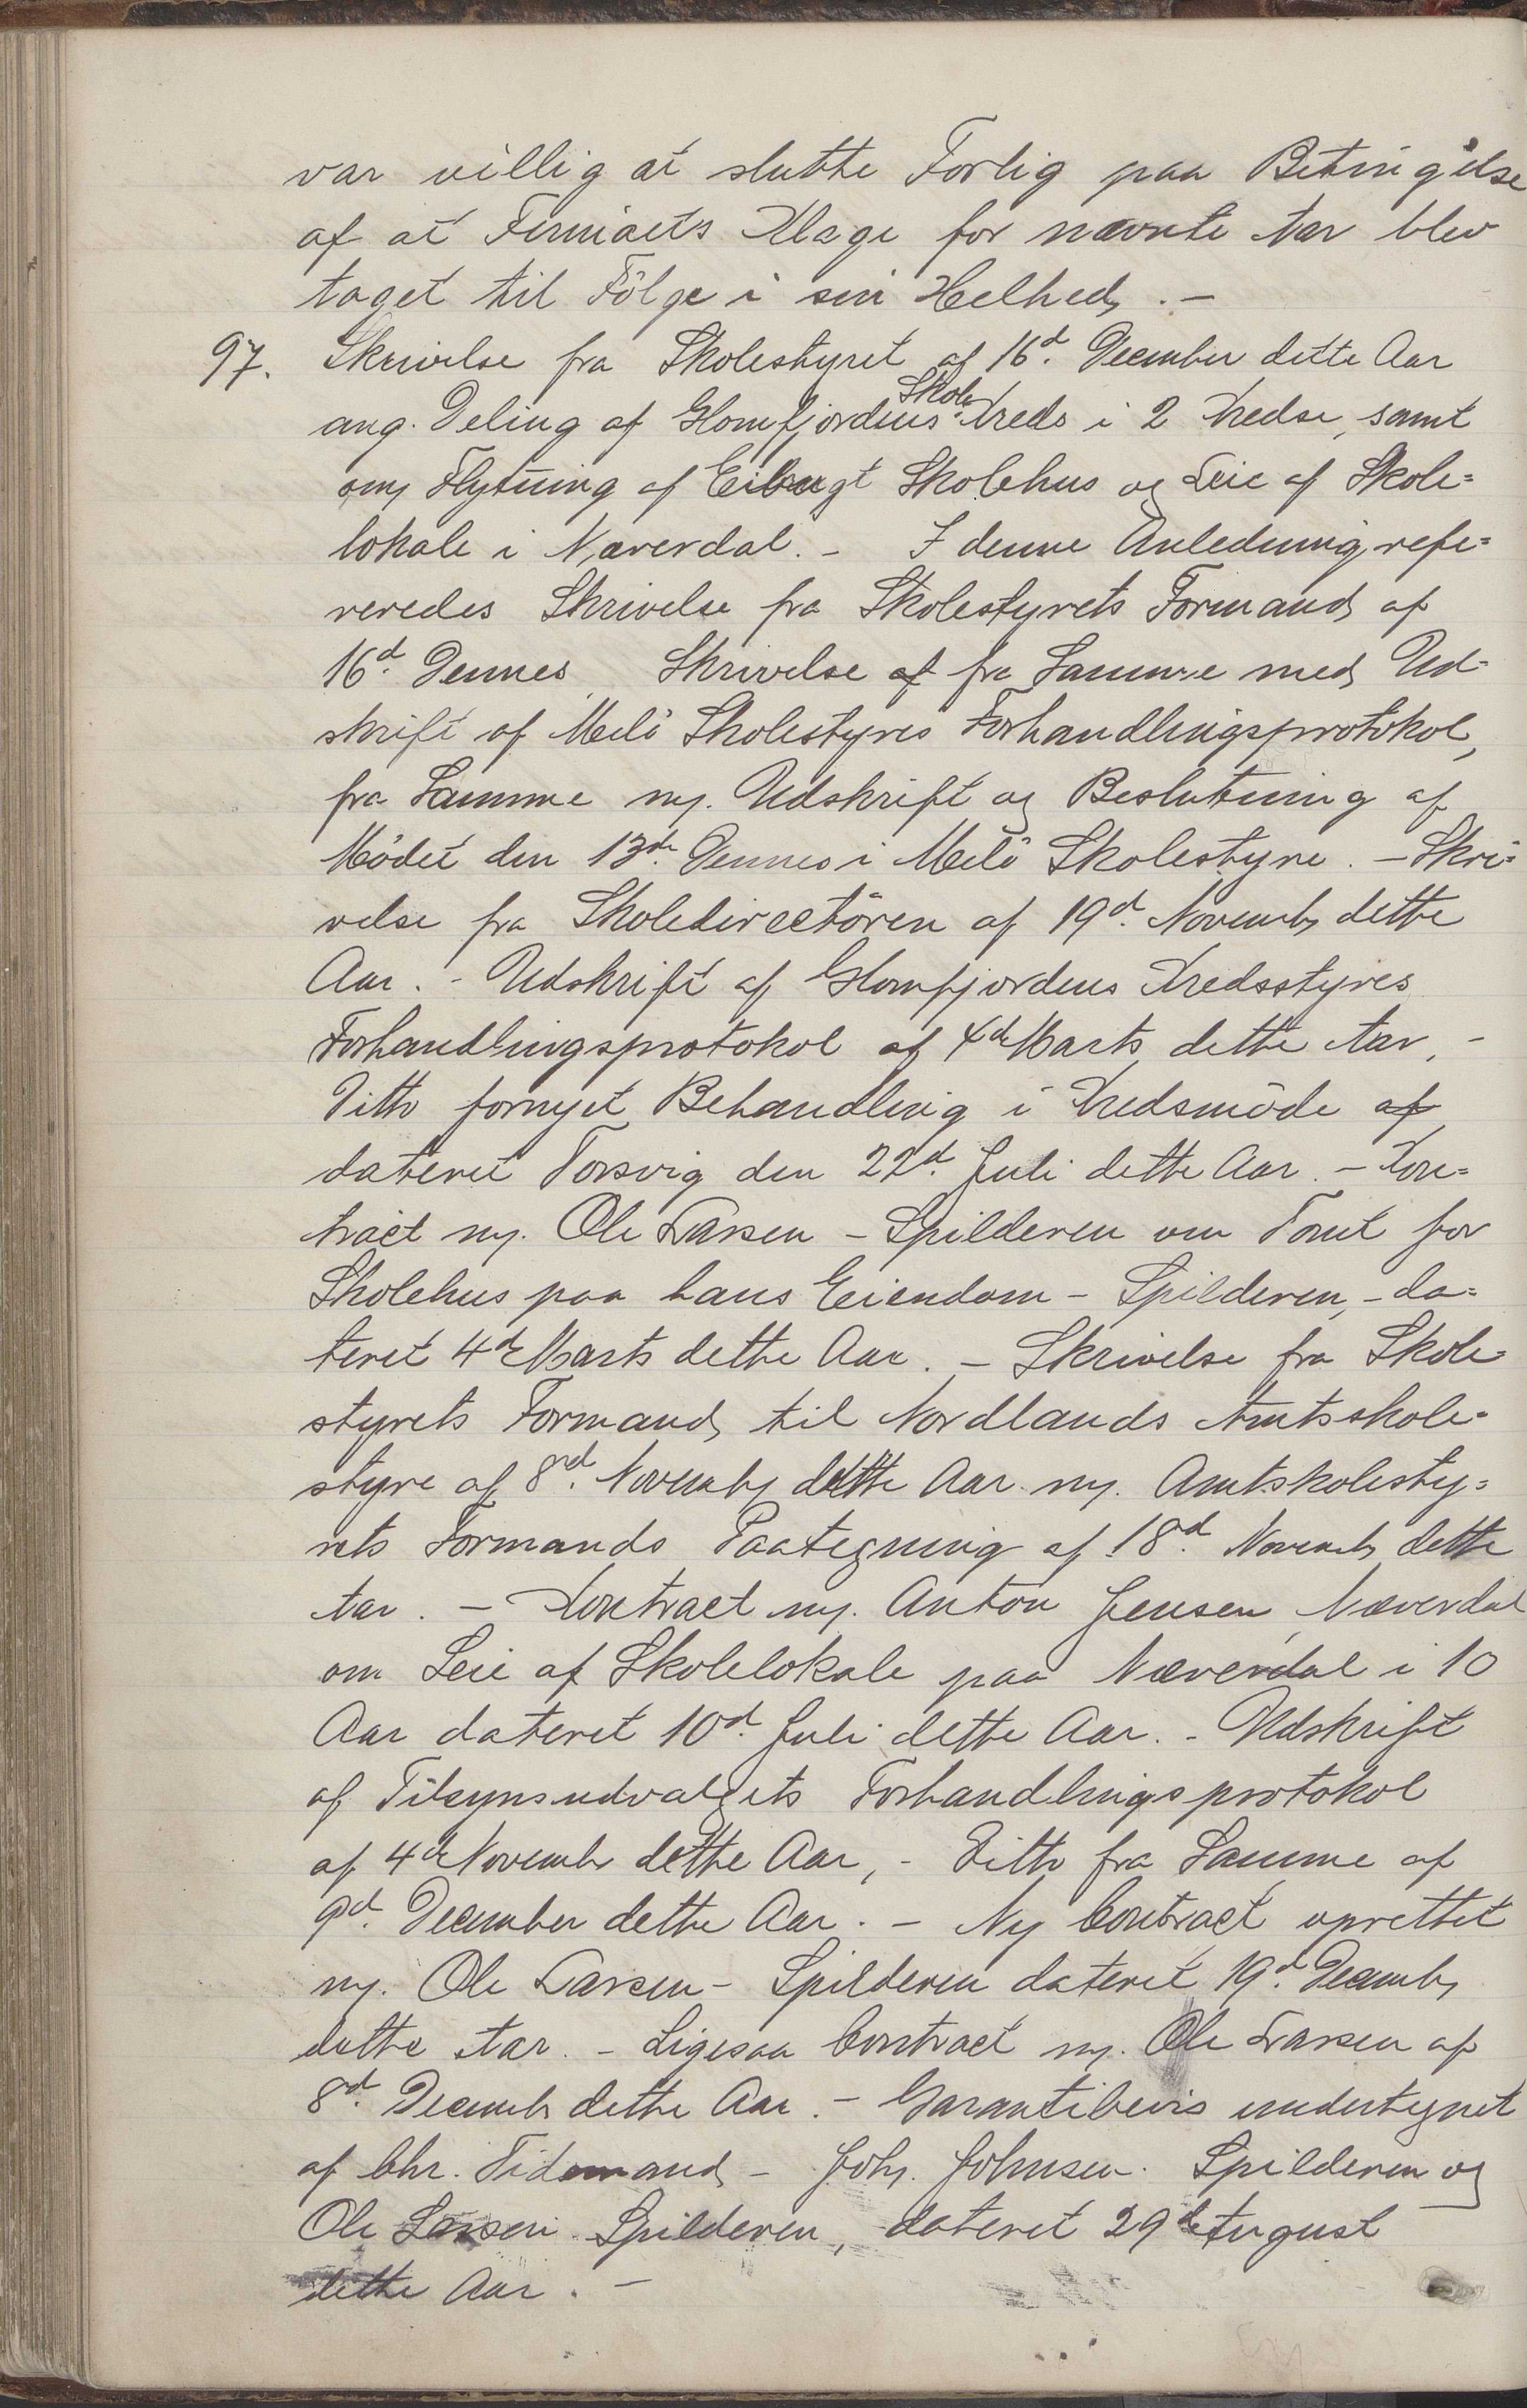 var villig at slutte Forlig paa Betingelse
af at Firmaets Klage for nævnte Aar blev
taget til Følge i sin Helhed. –
97. Skrivelse fra Skolestyret af 16d. December dette Aar
ang. Deling af Glomfjordens Skole-Kreds i 2 Kredse, samt
om Flytning af Eilaugt Skolehus og Leie af Skole=
lokale i Næverdal. – I denne Anledning refe=
reredes Skrivelse fra Skolestyrets Formand af
16d. Dennes Skrivelse af fra Samme med Ud=
skrift af Melö Skolestyres Forhandlingsprotokol,
fra Samme m. Udskrift og Beslutning af
Mödet den 13de Dennes i Melö Skolestyre. – Skri=
velse fra Skoledirectören af 19d. Novemb dette
Aar. – Udskrift af Glomfjordens Kredsstyres
Forhandlingsprotokol af 4de Marts dette Aar, –
Ditto fornyet Behandling i Kredsmöde af
dateret Torsvig den 22d. Juli dette Aar. – Kon=
tract m. Ole Larsen – Spilderen om Tomt for
Skolehus paa hans Eiendom – Spilderen, – da=
teret 4de Marts dette Aar. – Skrivelse fra Skole=
styrets Formand til Nordlands Amtsskole=
styre af 8d. Novemb dette Aar m. Amtskolesty=
rets Formands Paategning af 18d. Novemb dette
Aar. – Kontract m. Anton Jensen, Næverdal
om Leie af Skolelokale paa Næverdal i 10
Aar dateret 10d. Juli dette Aar. – Udskrift
af Tilsynsudvalgets Forhandlingsprotokol
af 4de Novemb dette Aar, – Ditto fra Samme af
9d. December dette Aar. – Ny Contract oprettet
m. Ole Larsen – Spilderen dateret 19d. Decemb
dette Aar. – Ligesaa Contract m. Ole Larsen af
8d. Decemb dette Aar. – Garantibevis undertegnet
af Chr. Tidemand – Joh. Johnsen. Spilderen og
Ole Larsen Spilderen, dateret 29de August
dette Aar. –